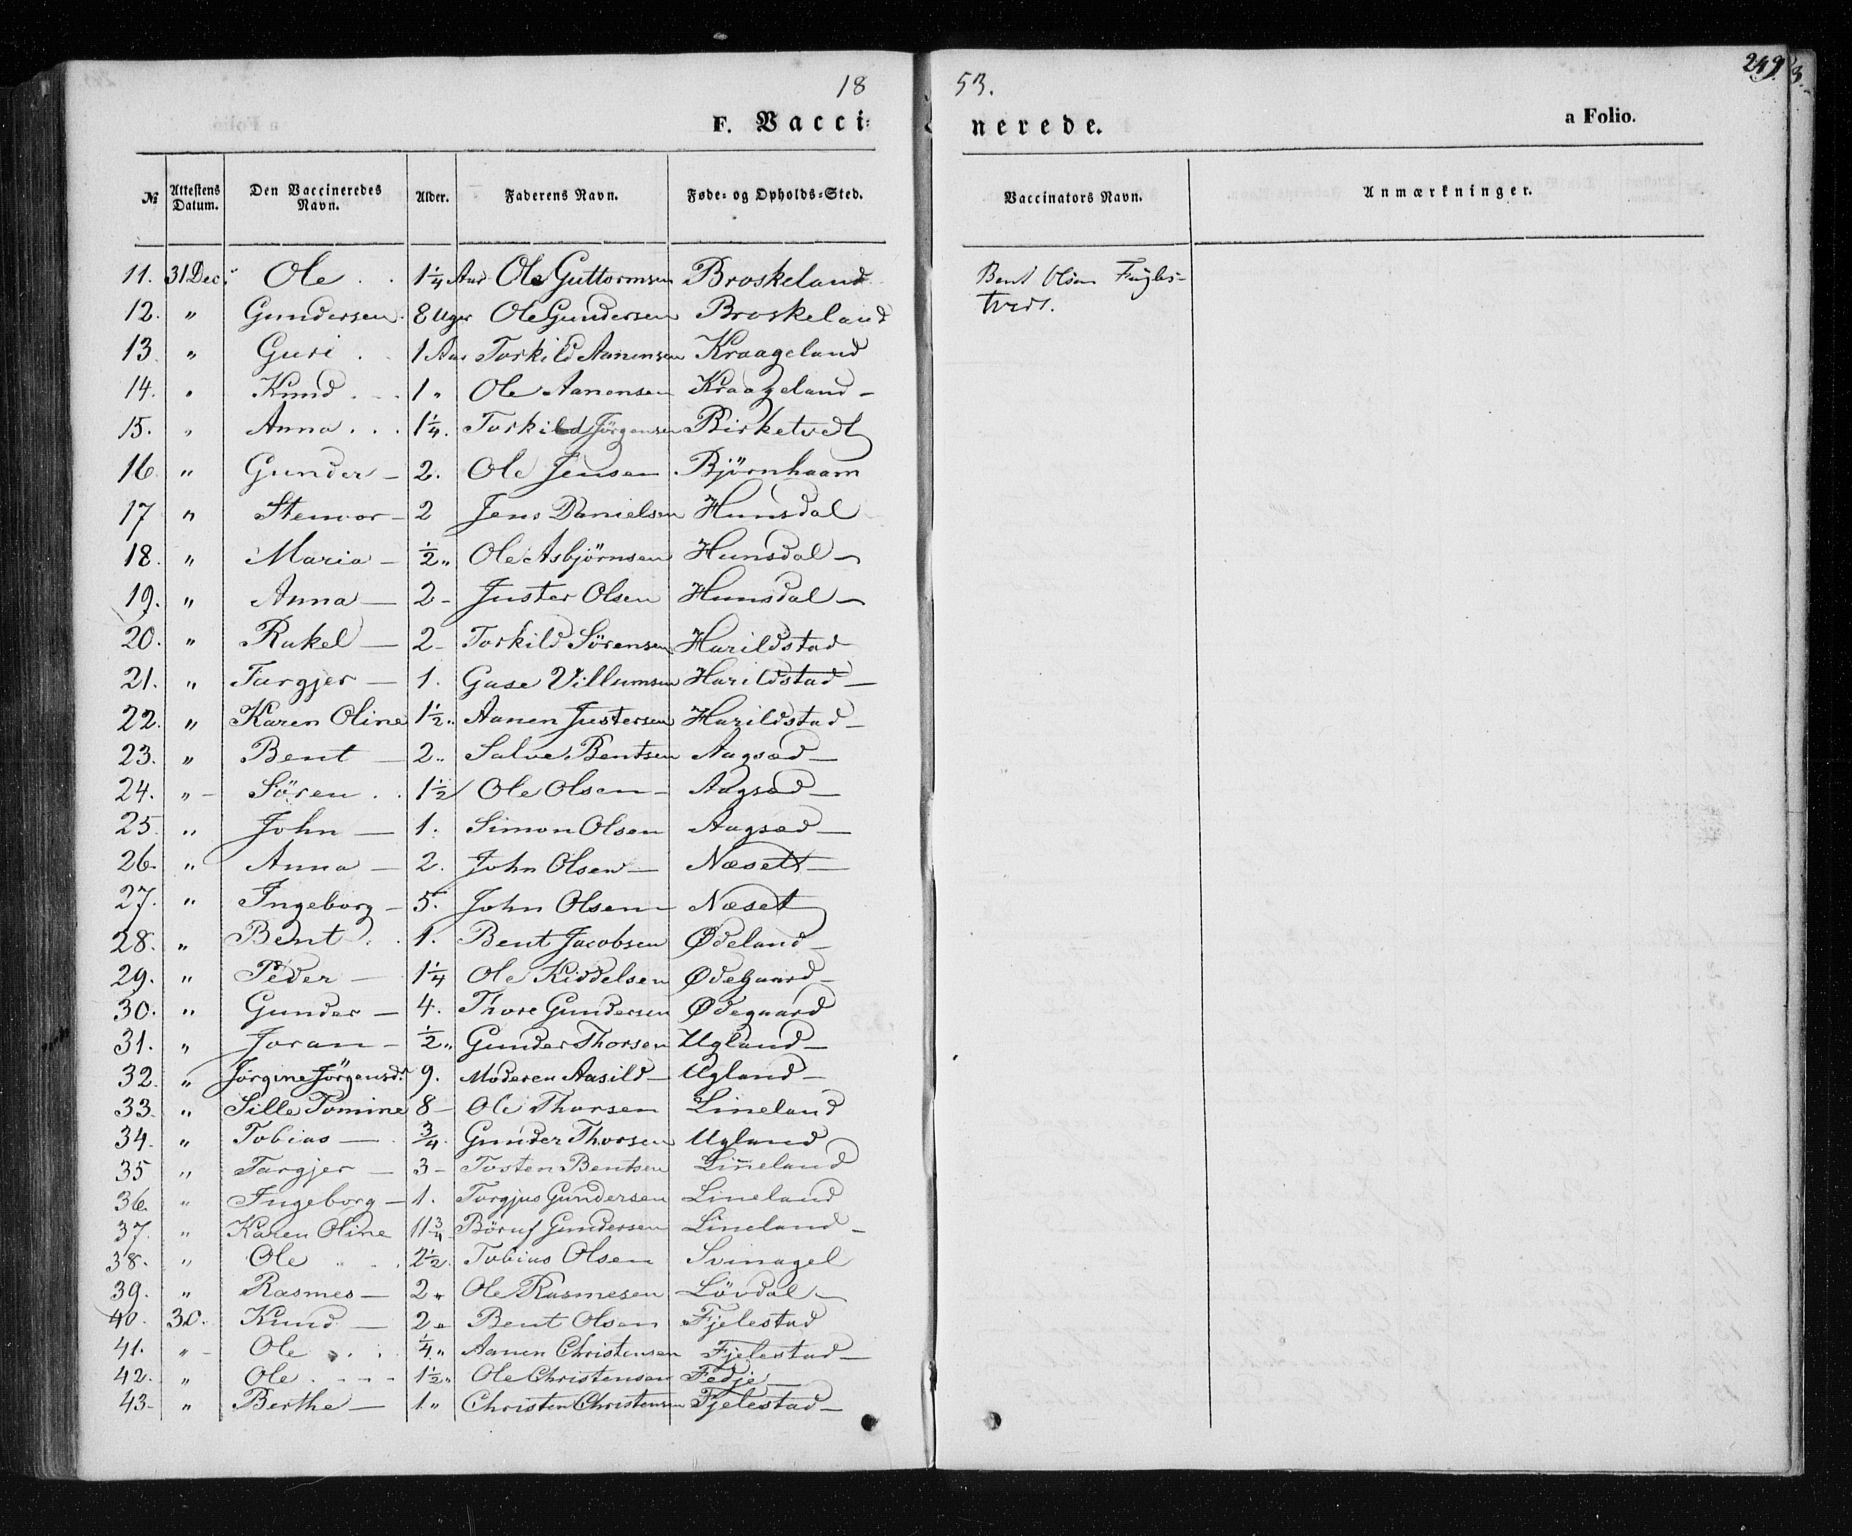 18 53.
249
F. Vacci- nerede. a Folio.
№ Attestens Datum. Den Vaccineredes Navn. Alder. Faderens Navn. Føde- og Opholds-Sted. Vaccinators Navn. Anmærkninger.
11. 31 Dec. Ole . . 1 1/4 Aar Ole Guttormsen Broskeland Bent Olsen Fugles-
12. " Gundersen. 8 Uger Ole Gundersen Broskeland tvedt.
13. " Guri . . 1 Aar Torkild Aanensen Kraageland
14. " Knud . . 1 " Ole Aanensen Kraageland -
15. " Anna . . . 1 1/4. Torkild Jørgensen Birketvedt
16. " Gunder - 2. Ole Jensen Bjørnhaam
17 " Stenvor - 2 Jens Danielsen Hunsdal
18. " Maria - 1/2 " Ole Asbjørnsen Hunsdal -
19. " Anna - 2 - Juster Olsen Hunsdal -
20. " Rakel - 2 - Torkild Sörensen Harildstad
21. " Targjer - 1. Gase Villumsen Harildstad -
22. " Karen Oline 1 1/2 " Aanen Justersen Harildstad -
23. " Bent - 2 " Salve Bentsen Augsæd -
24. " - Sören . . 1 1/2 Ole Olsen - Augsæd -
25. " John - 1. Simon Olsen Augsæd -
26. " Anna - 2. John Olsen - Næsett -
27. " Ingeborg - 5. John Olsen - Næset
28. " Bent . . 1. Bent Jacobsen Ødeland -
29. " Peder - 1 1/4 Ole Kiddelsen Ødegaard -
30. " Gunder - 4. Thore Gundersen Ødegaard
31. " Joran - 1/2 " Gunder Thorsen Ugland -
32. " Jörgine Jörgensd. 9. Moderen Aasild - Ugland -
33. " Sille Tomine 8 - Ole Thorsen Lineland
34. " Tobias - 3/4. Gunder Thorsen Ugland
35 " Targjer - 3 - Tosten Bentsen Lineland
36. " Ingeborg - 1. Torgjus Gundersen Lineland
37. " Karen Oline 11 3/4 Böruf Gundersen Lineland -
38. " Ole . . . 2 1/2. Tobias Olsen Svinagel
39. " Rasmes - 2 " Ole Rasmesen Lövdal -
40. 30. Knud - 2 " Bent Olsen Fjelestad
41. " - Ole . . . 1/4 " Aanen Christensen Fjelestad -
42. " Ole . - - - 1 1/2 " Ole Christensen Fedje -
43 - " Berthe - 1. " Christen Christensen Fjelestad -